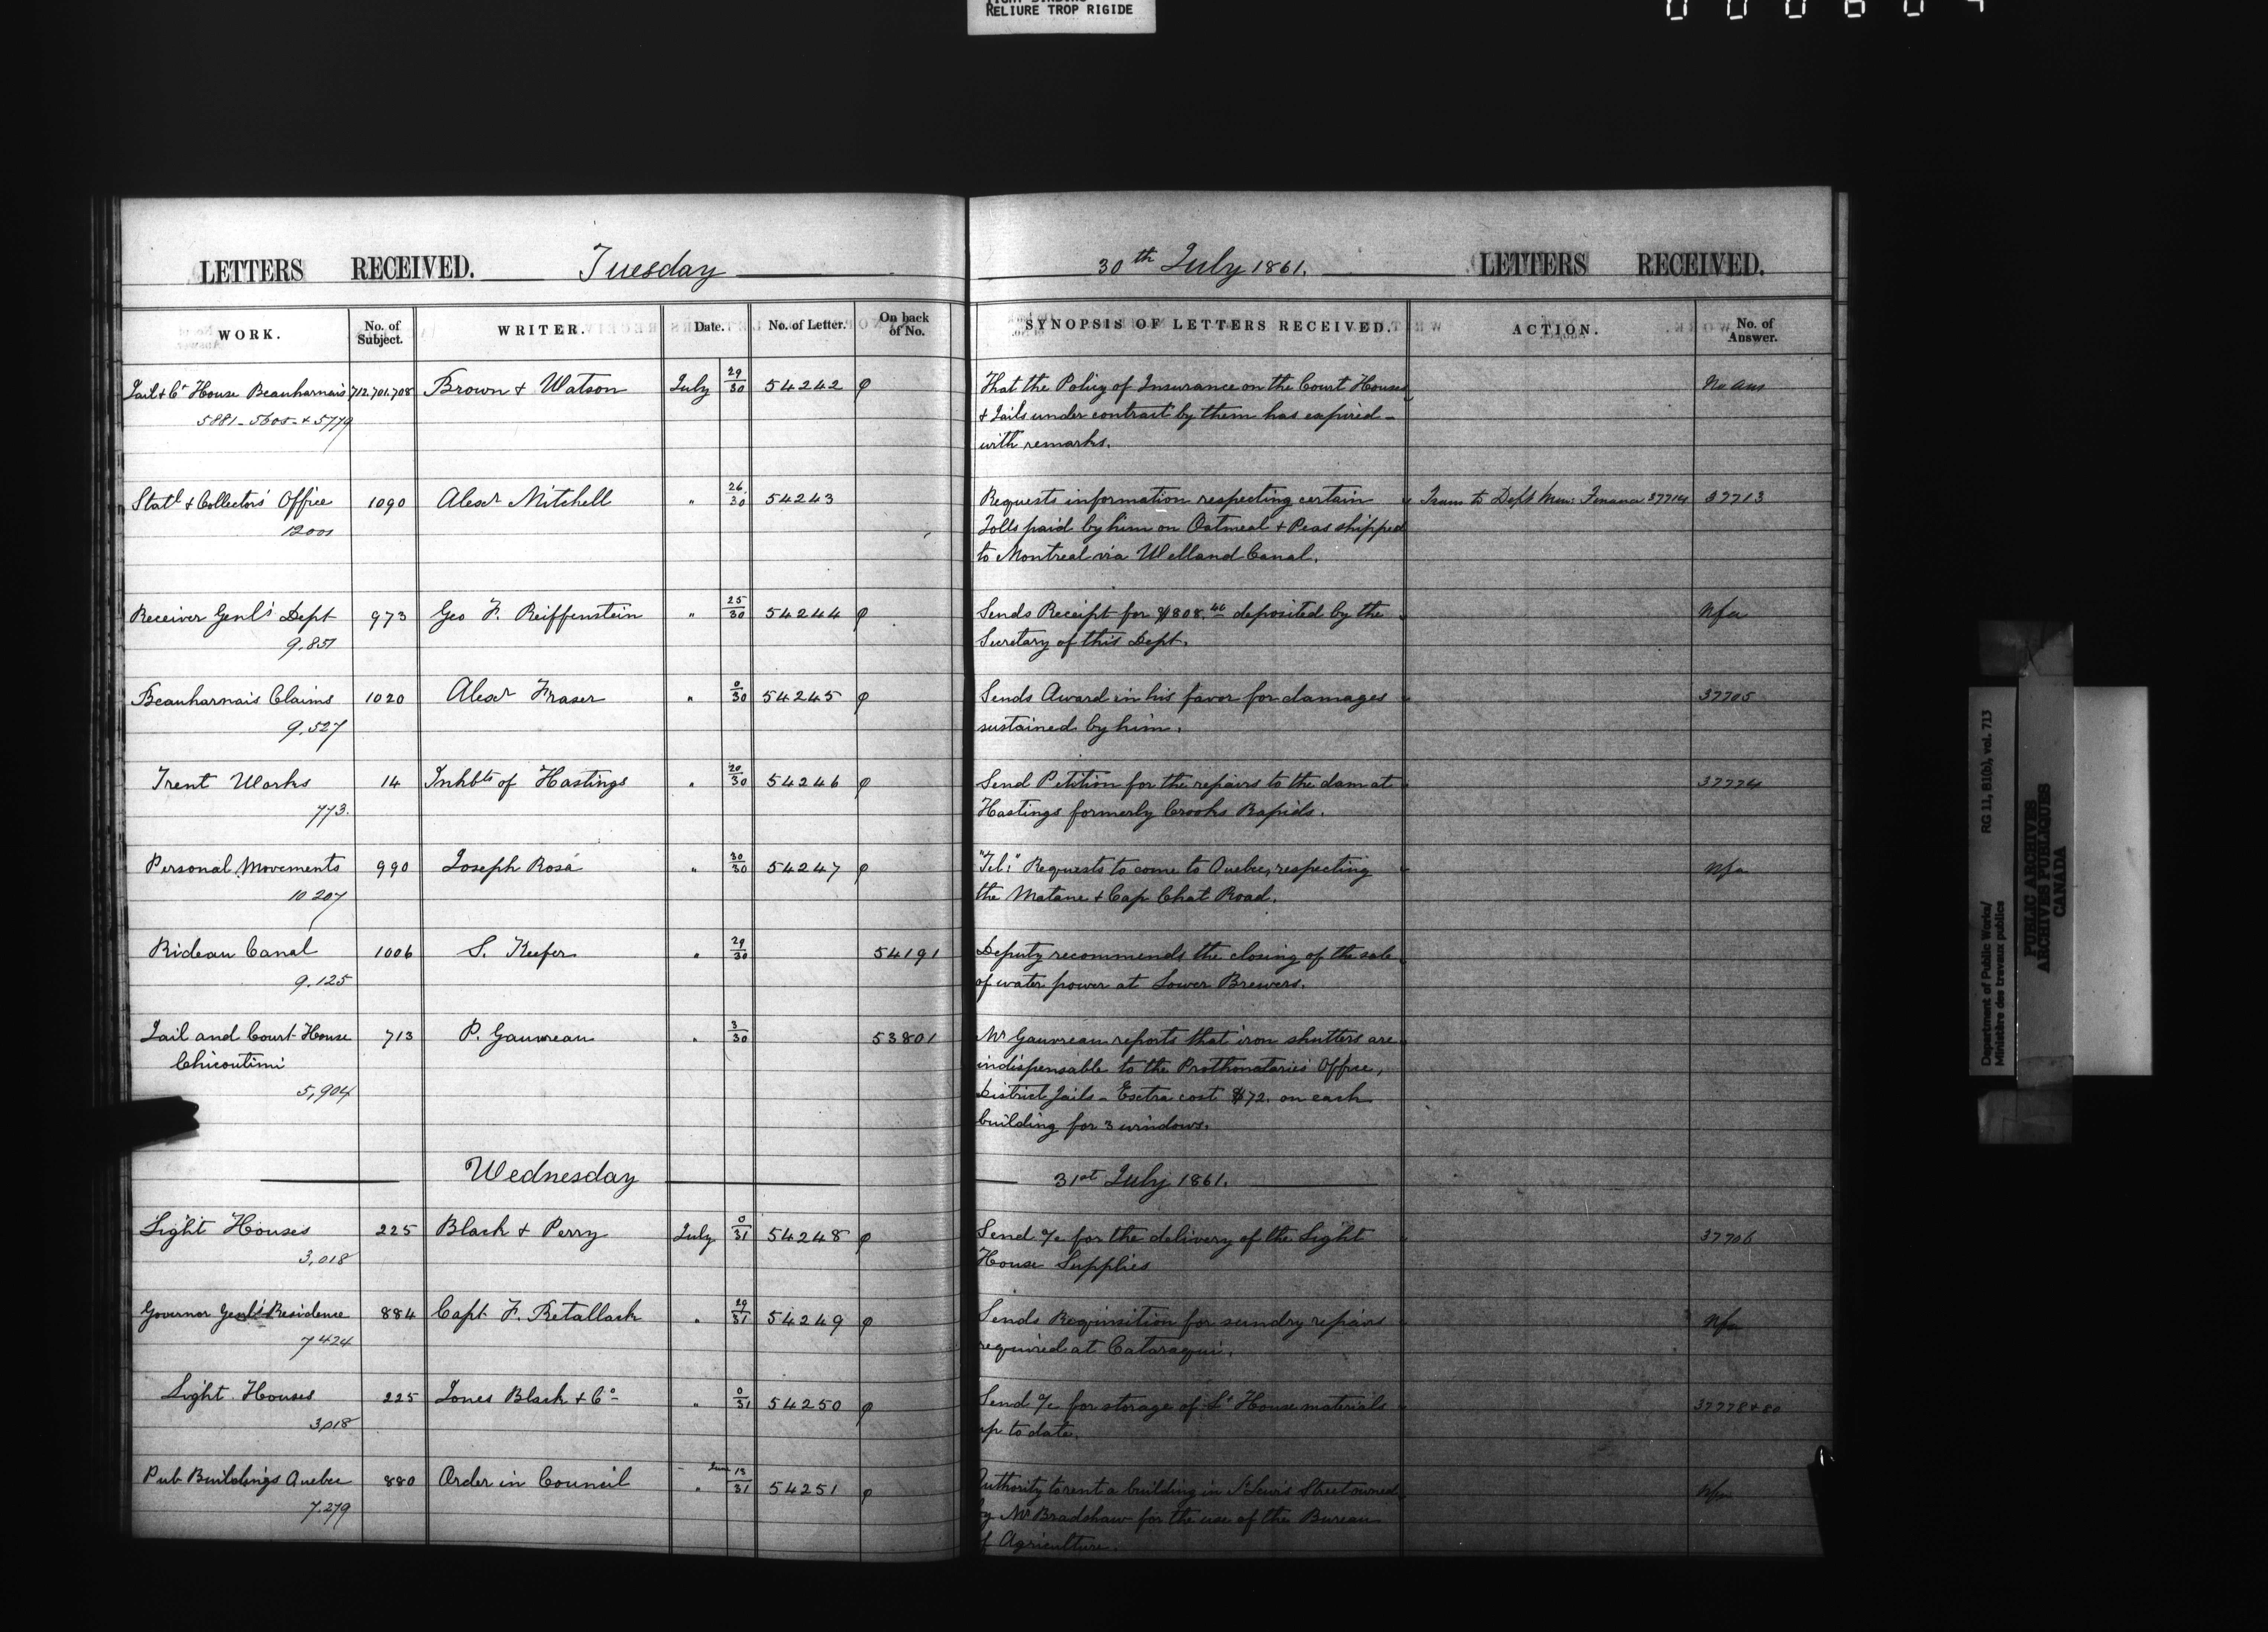 RELIURE TROP RIGIDE
LETTERS RECEIVED. Tuesday
30th July 1861. LETTERS RECEIVED.
WORK. No. of Subject. WRITER. Date. No. of Letter. On back of No. SYNOPSIS OF LETTERS RECEIVED. ACTION. No. of Answer.
Jail & Ct House Beauharnais 712.701.708 Brown & Watson July 29/30 54242 φ That the Policy of Insurance on the Court Houses No Ans
5881 - 5605 - & 5779 & Jails under contract by them has expired -
with remarks.
Statl & Collectors' Office 1090 Alexr Mitchell " 26/30 54243 Requests information respecting certain Trans to Dept Min: Finance 37714 37713
12001 Tolls paid by him on Oatmeal & Peas shipped
to Montreal via Welland Canal.
Receiver Genl's Dept 973 Geo F. Reiffenstein " 25/30 54244 φ Sends Receipt for $808.46 deposited by the Nfa
9.851 Secretary of this Dept.
Beauharnais Claims 1020 Alexr Fraser " 0/30 54245 φ Sends Award in his favor for damages 37705
9.527 sustained by him.
Trent Works 14 Inhbts of Hastings " 20/30 54246 φ Send Petition for the repairs to the dam at 37774
773. Hastings formerly Crooks Rapids.
Personal Movements 990 Joseph Rosa " 30/30 54247 φ "Tel:" Requests to come to Quebec, respecting Nfa
10207 the Matane & Cap Chat Road.
Rideau Canal 1006 S. Keefer " 29/30 54191 Deputy recommends the closing of the sale
9.125 of water power at Lower Brewers.
Jail and Court House 713 P. Gauvreau " 3/30 53801 Mr Gauvreau reports that iron shutters are
Chicoutimi indispensable to the Prothonataries Office,
5,904 District Jails - Extra cost $72. on each
building for 3 windows.
Wednesday 31st July 1861.
Light Houses 225 Black & Perry July 0/31 54248 φ Send a/c for the delivery of the Light 37706
3,018 House Supplies
Governor Genl's Residence 884 Capt F. Retallack " 29/31 54249 φ Sends Requisition for sundry repairs Nfa
7424 required at Cataraqui.
Light Houses 225 Jones Black & Co " 0/31 54250 φ Send a/c for storage of Lt House materials 37778 & 80
3,018 up to date.
Pub Buildings Quebec 880 Order in Council " June 13/31 54251 φ Authority to rent a building in St Lewis Street owned Nfa
7.279 by Mr Bradshaw for the use of the Bureau
of Agriculture.
Department of Public Works/ RG 11, B1(b), vol. 713
Ministère des travaux publics
PUBLIC ARCHIVES
ARCHIVES PUBLIQUES
CANADA